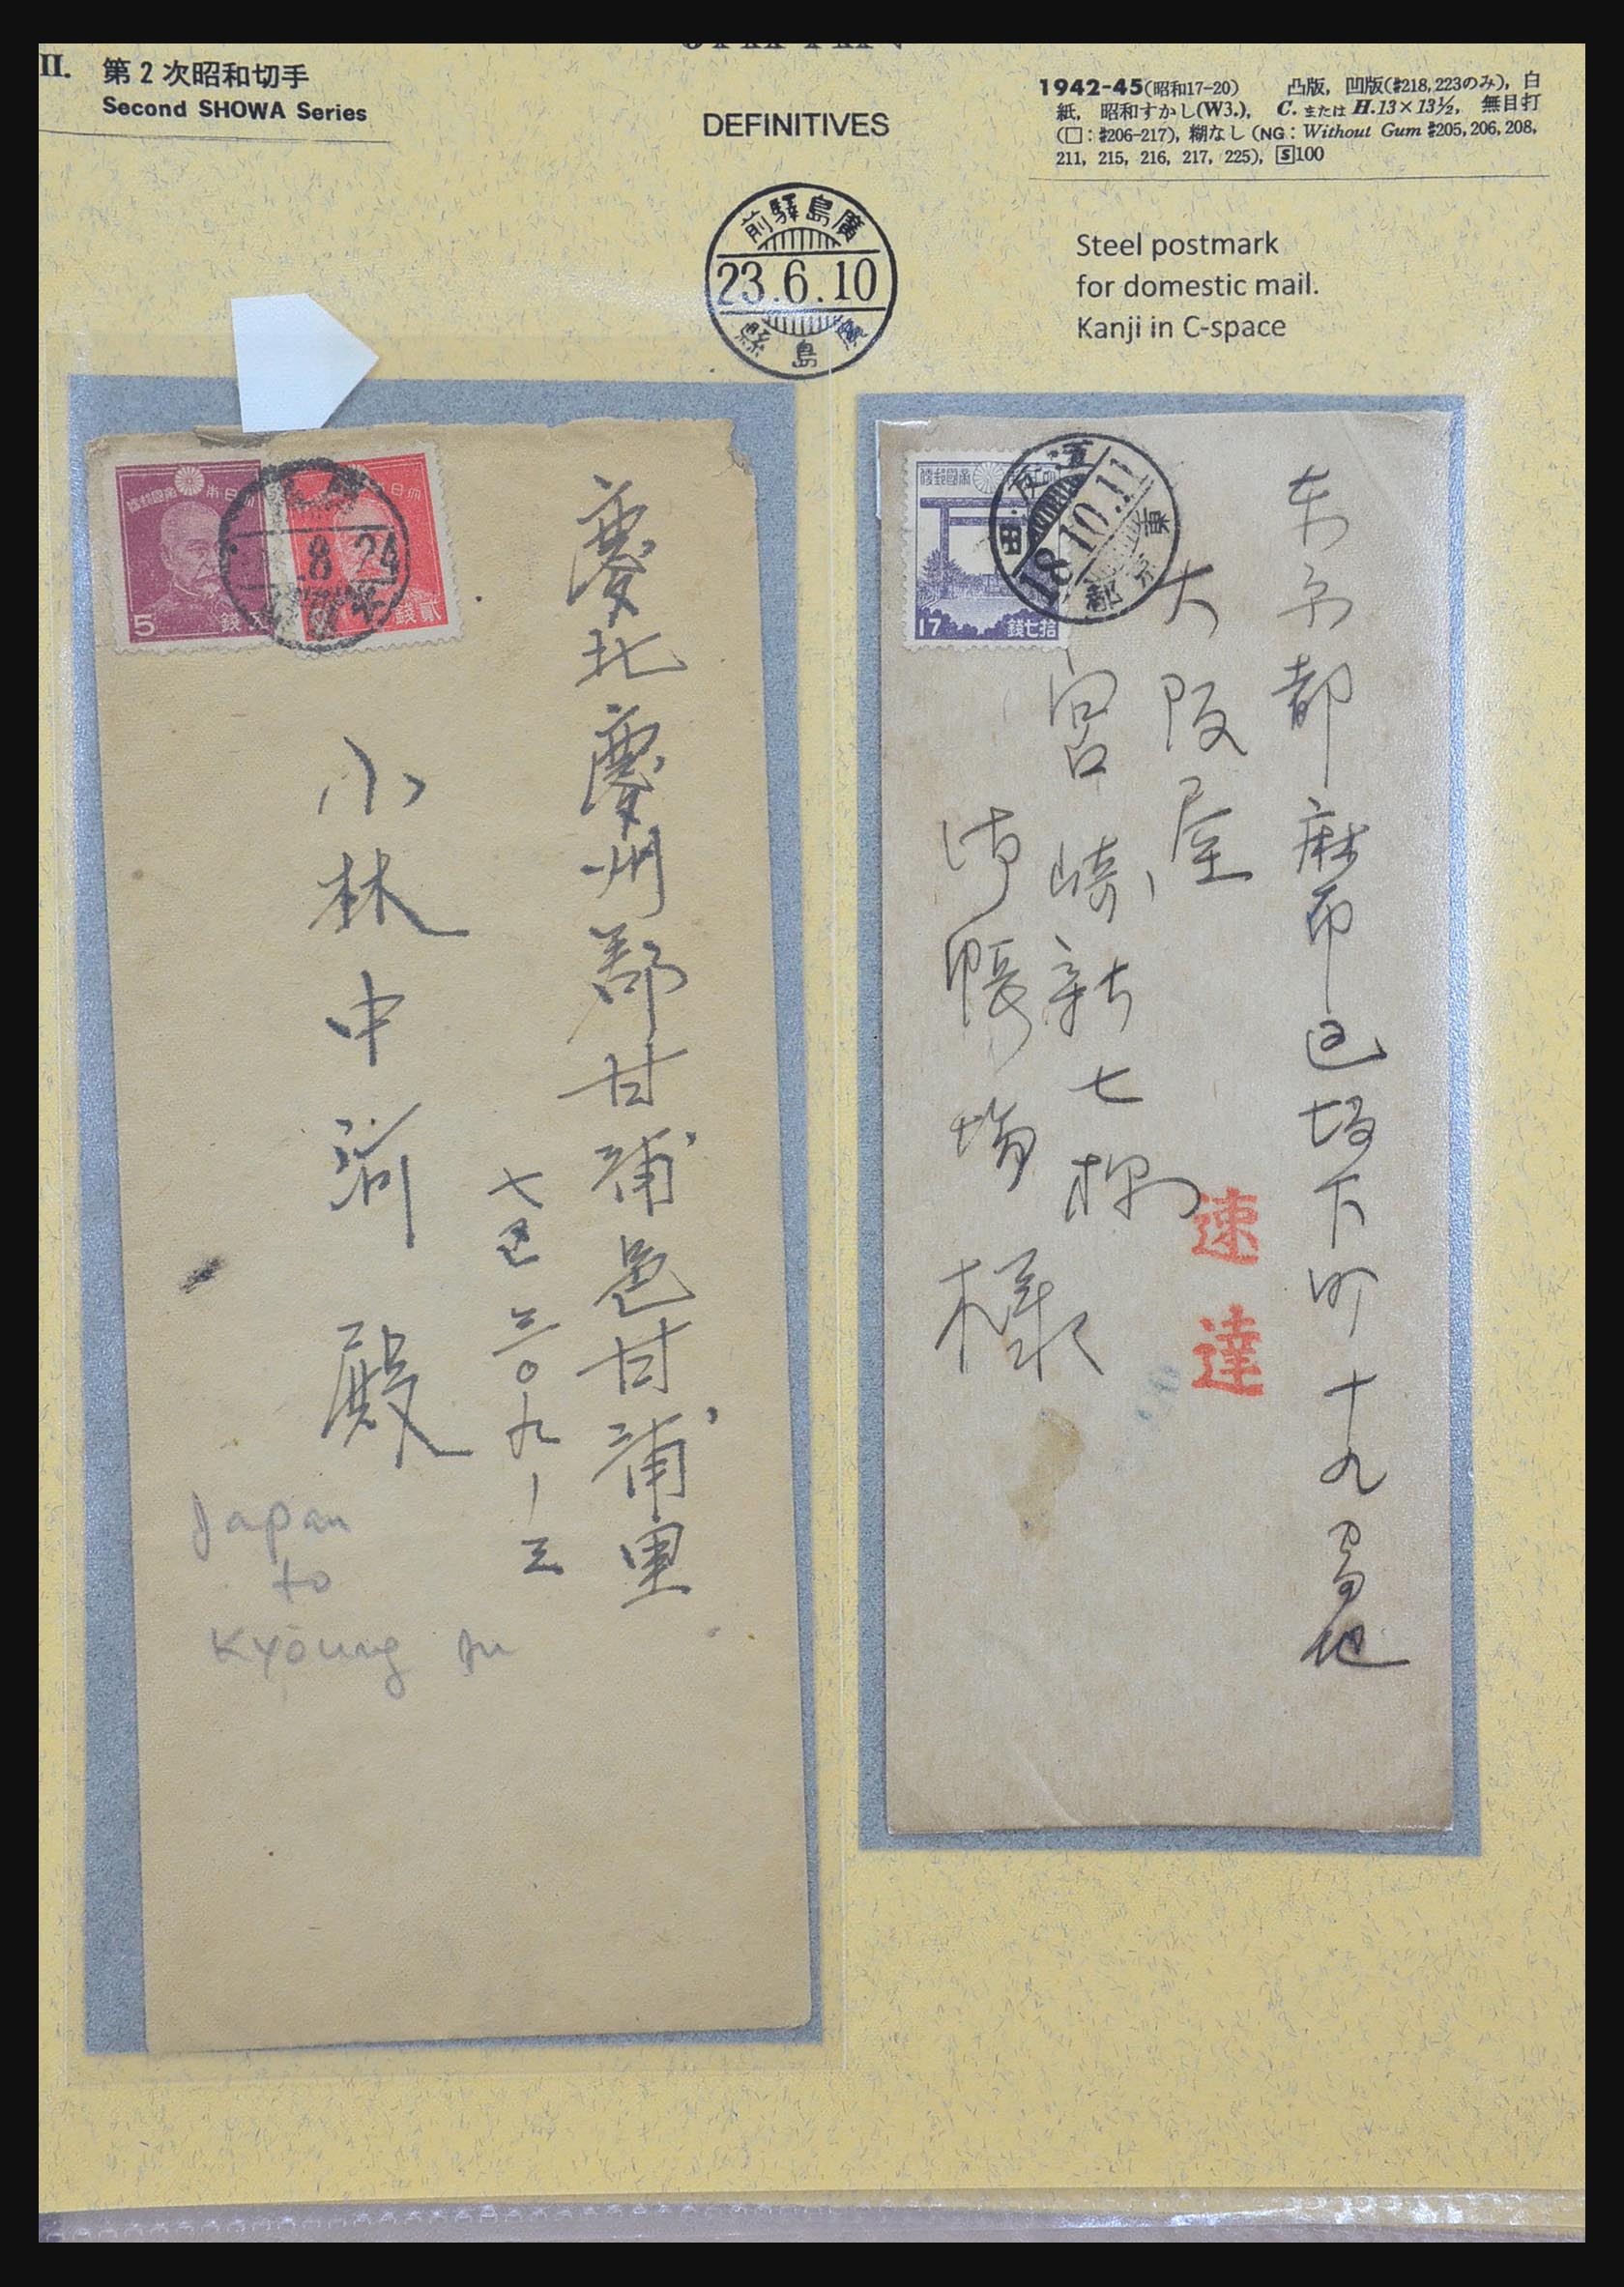 II. 第2次昭和切手
Second SHOWA Series
DEFINITIVES
1942-45(昭和17-20) 凸版, 凹版(#218, 223のみ), 白
紙, 昭和すかし(W3.), C. または H. 13×13½, 無目打
(□: #206-217), 糊なし (NG: Without Gum #205, 206, 208,
211, 215, 216, 217, 225), S100
前驛島廣
23.6.10
縣島廣
Steel postmark
for domestic mail.
Kanji in C-space
5
.8.24
貳錢
慶北慶州郡甘浦邑甘浦里
七区三〇九ノ三
小林中河殿
Japan
to
Kyoung Ju
17
錢七拾
18.10.11
東京都
东京都麻布区坂下町十九番地
大阪屋
宮崎新七様
御帳場様
速達